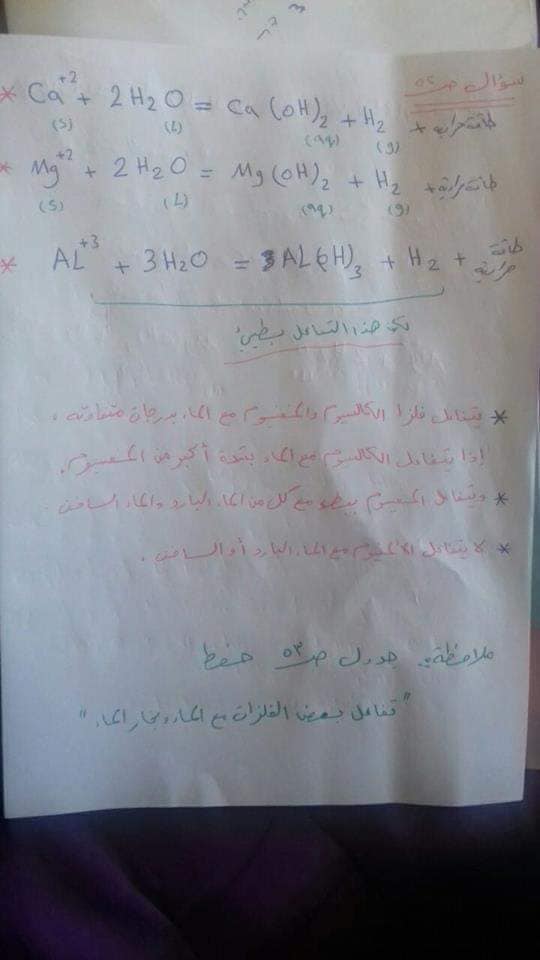 سؤال ص ٥٢
* Ca+2 + 2H2O = Ca(OH)2 + H2 + طاقة حرارية
(s) (L) (aq) (g)
* Mg+2 + 2H2O = Mg(OH)2 + H2 + طاقة حرارية
(s) (L) (aq) (g)
* AL+3 + 3H2O = 3AL(OH)3 + H2 + طاقة حرارية
لكن هذا التفاعل بطيئ
* يتفاعل فلزا الكالسيوم والمغنيسيوم مع الماء بدرجات متفاوته ،
إذا يتفاعل الكالسيوم مع الماء بشدة أكبر من المغنيسيوم.
* ويتفاعل المغنيسيوم ببطء مع كل من الماء البارد والماء الساخن .
* لا يتفاعل الألمنيوم مع الماء البارد أو الساخن .
ملاحظة :- جدول ص ٥٣ حفظ
"تفاعل بعض الفلزات مع الماء وبخار الماء"